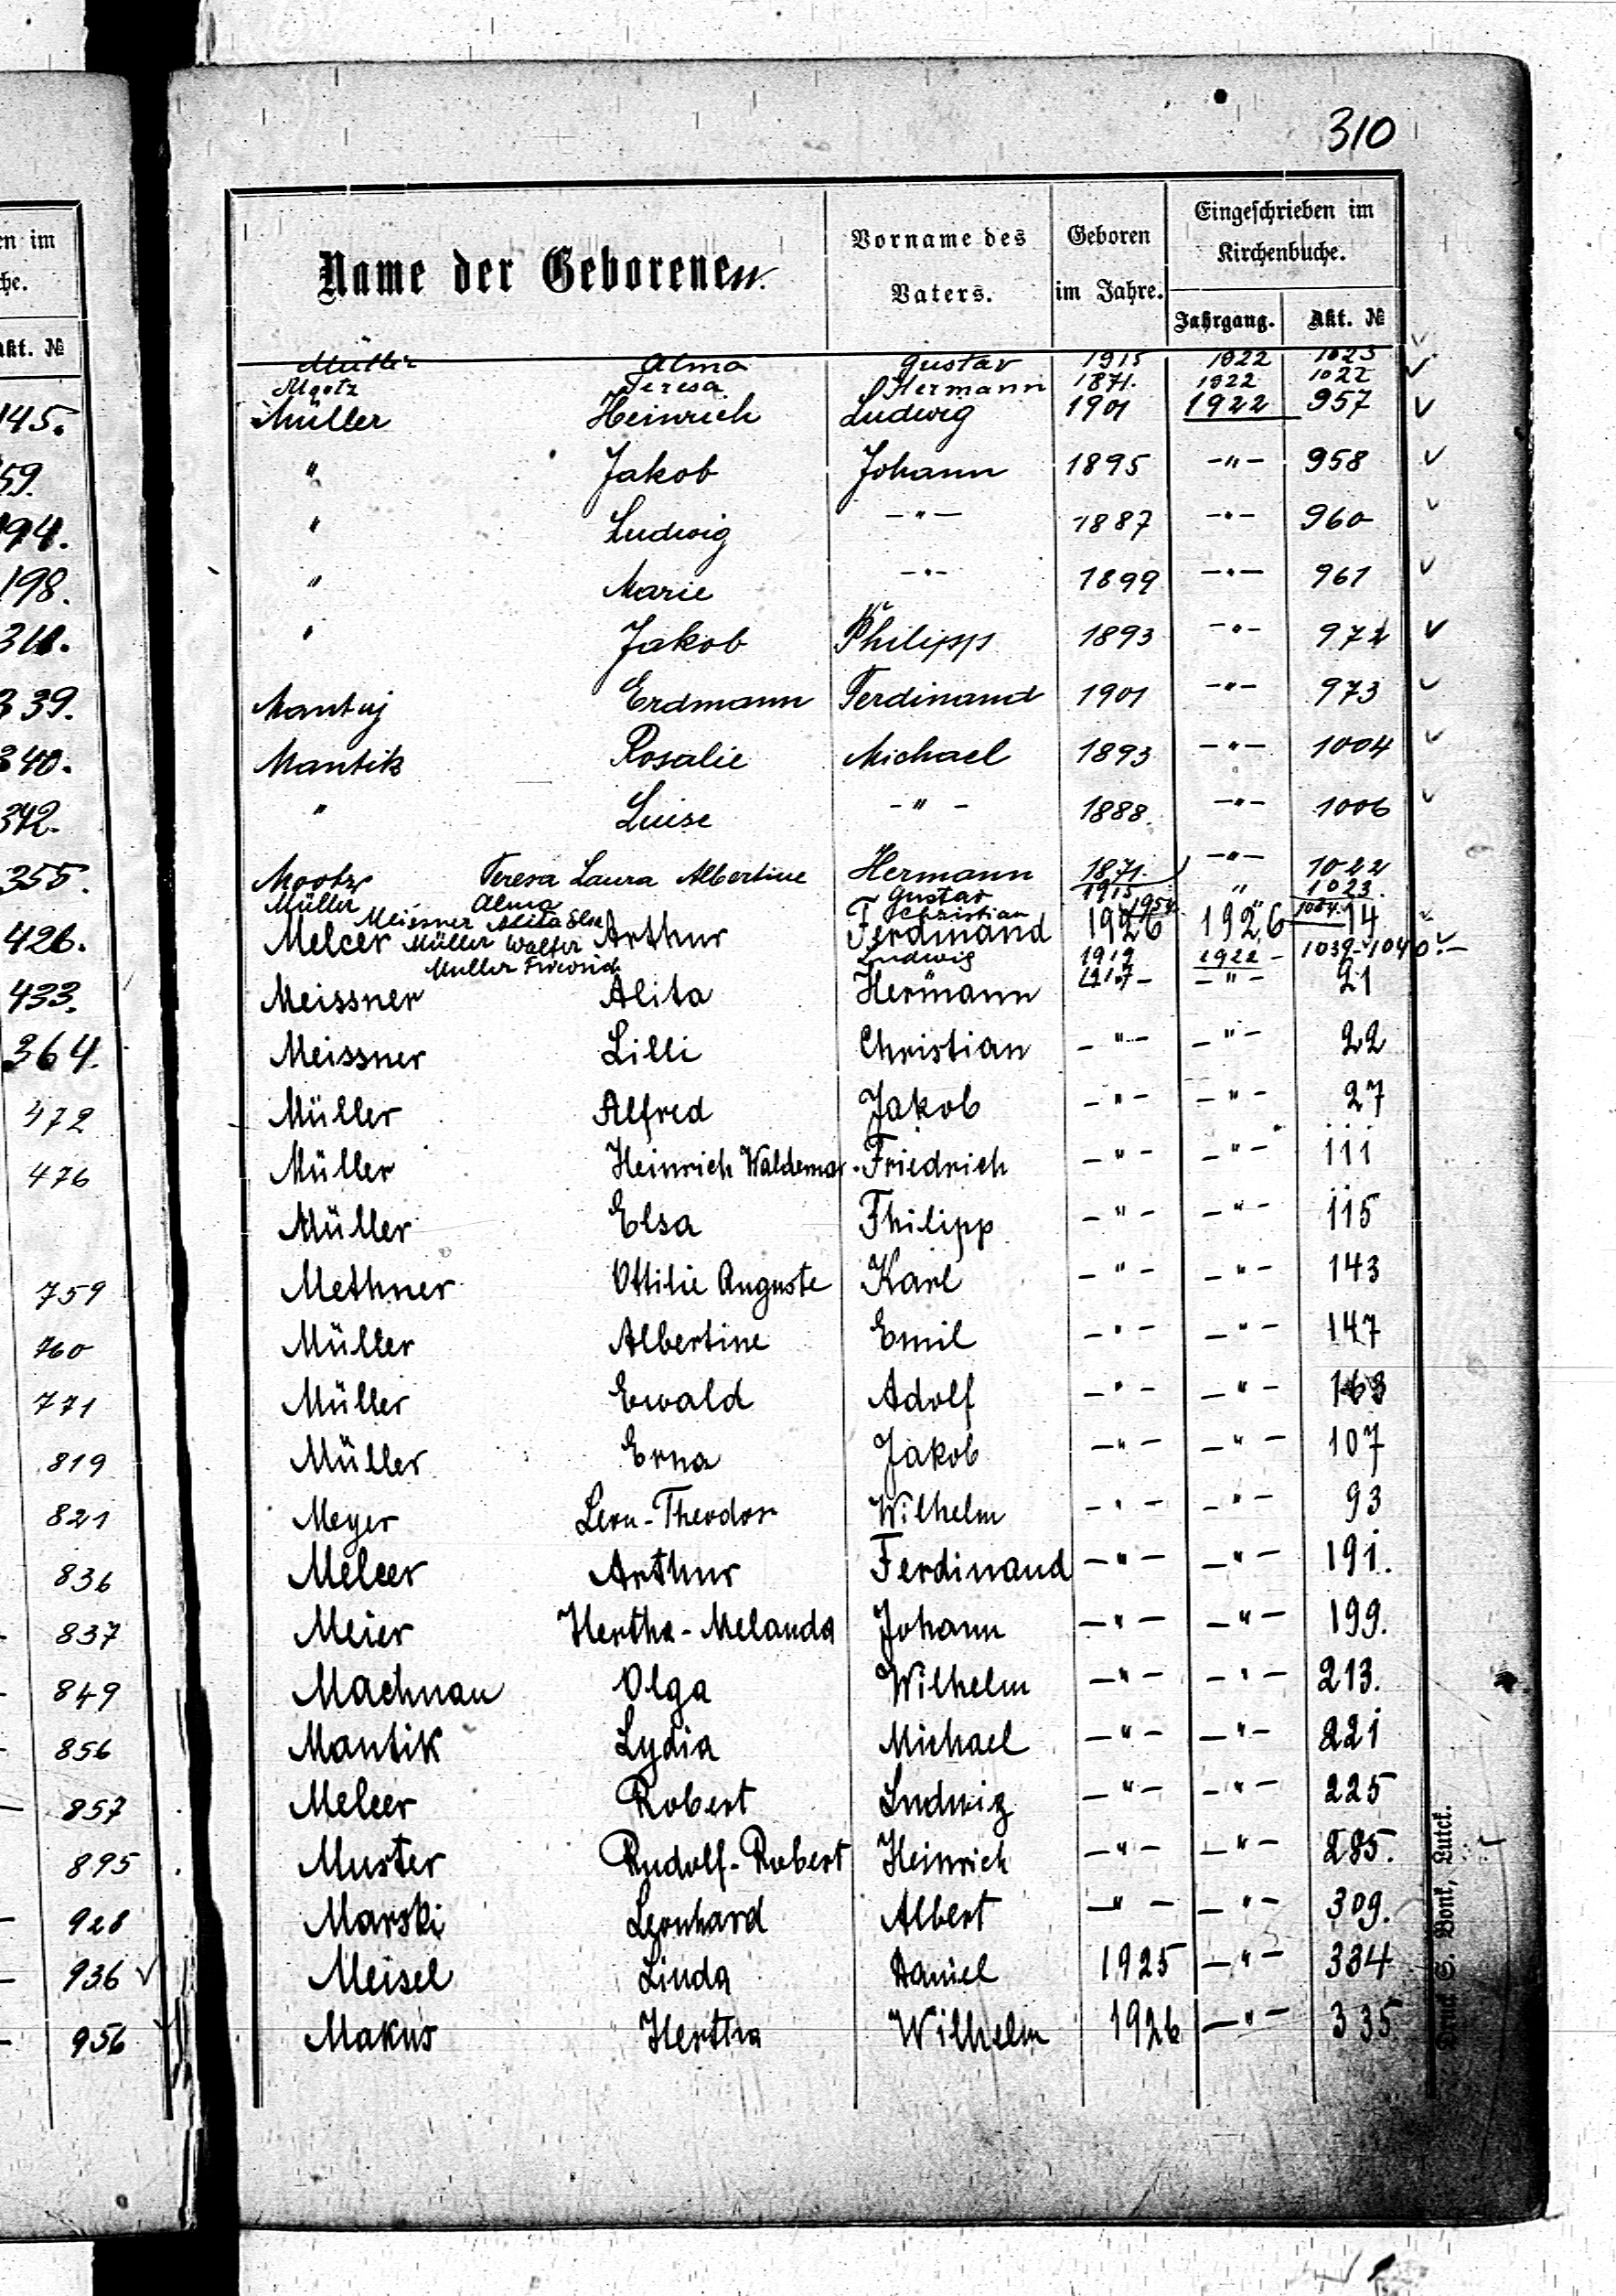 310
en im
che.
Akt. №
145.
59.
194.
198.
311.
339.
340.
342.
355.
426.
433.
364.
472
476
759
760
771
819
821
836
837
849
856
857
895
928
936 ✓
956
Name der Geborenen. Vorname des Vaters. Geboren im Jahre. Eingeschrieben im Kirchenbuche.
Jahrgang. Akt. №
Müller Alma Gustav 1915 1922 1023
Mootz Teresa Hermann 1871. 1922 1022 ✓
Müller Heinrich Ludwig 1901 1922 957 ✓
" Jakob Johann 1895 -"- 958 ✓
" Ludwig -"- 1887 -"- 960 ✓
" Marie -"- 1899 -"- 961 ✓
" Jakob Philipp 1893 -"- 972 ✓
Mantuj Erdmann Ferdinand 1901 -"- 973 ✓
Mantik Rosalie Michael 1893 -"- 1004 ✓
" Luise -"- 1888. -"- 1006 ✓
Mootz Teresa Laura Albertine Hermann 1871. -"- 1022
Müller Alma Gustav 1915 " 1023.
Meissner Alita Else Christian
Melcer Arthur Ferdinand 1926 1926 14
Müller Walter Ludwig 1919 1922 - 1039-1040. -
Müller Friedrich 1917 -
Meissner Alita Hermann -"- 21
Meissner Lilli Christian -"- -"- 22
Müller Alfred Jakob -"- -"- 27
Müller Heinrich Waldemar. Friedrich -"- -"- 111
Müller Elsa Philipp -"- -"- 115
Methner Ottilie Auguste Karl -"- -"- 143
Müller Albertine Emil -"- -"- 147
Müller Ewald Adolf -"- -"- 163
Müller Erna Jakob -"- -"- 107
Meyer Leon-Theodor Wilhelm -"- -"- 93
Melcer Arthur Ferdinand -"- -"- 191.
Meier Hertha-Melanda Johann -"- -"- 199.
Machnau Olga Wilhelm -"- -"- 213.
Mantik Lydia Michael -"- -"- 221
Melcer Robert Ludwig -"- -"- 225
Muster Rudolf-Robert Heinrich -"- -"- 285.
Marski Leonhard Albert -"- -"- 309.
Meisel Linda Daniel 1925 -"- 334
Makus Hertha Wilhelm 1926 -"- 335
Druck S. Bonk, Luck.